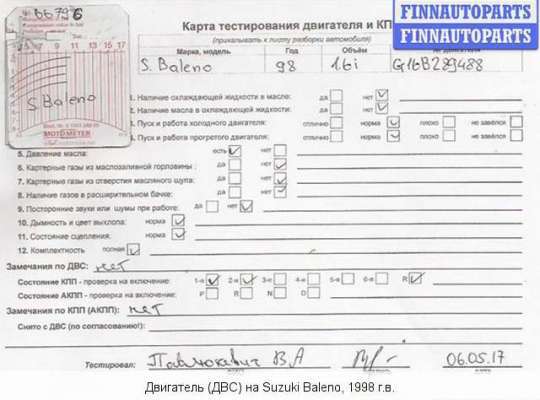 FINNAUTOPARTS
FINNAUTOPARTS
Карта тестирования двигателя и КП
(прикалывать к листу разборки автомобиля)
Марка, модель Год Объём № двигателя
S. Baleno 98 1.6i G16B289488
11 13 15 17
S Baleno
MOTOMETER
1. Наличие охлаждающей жидкости в масле: да нет
2. Наличие масла в охлаждающей жидкости: да нет
3. Пуск и работа холодного двигателя: отлично норма плохо не завёлся
4. Пуск и работа прогретого двигателя: отлично норма плохо не завёлся
5. Давление масла: есть нет
6. Картерные газы из маслозаливной горловины: да нет
7. Картерные газы из отверстия масляного щупа: да нет
8. Наличие газов в расширительном бачке: да нет
9. Посторонние звуки или шумы при работе: да нет
10. Дымность и цвет выхлопа: норма
11. Состояние сцепления: норма
12. Комплектность полная
Замечания по ДВС: нет
Состояние КПП - проверка на включение: 1-я 2-я 3-я 4-я 5-я 6-я R
Состояние АКПП - проверка на включение: P R N D
Замечания по КПП (АКПП): нет
Снято с ДВС (по согласованию!):
Тестировал: Павлюкевич В А 06.05.17
Двигатель (ДВС) на Suzuki Baleno, 1998 г.в.